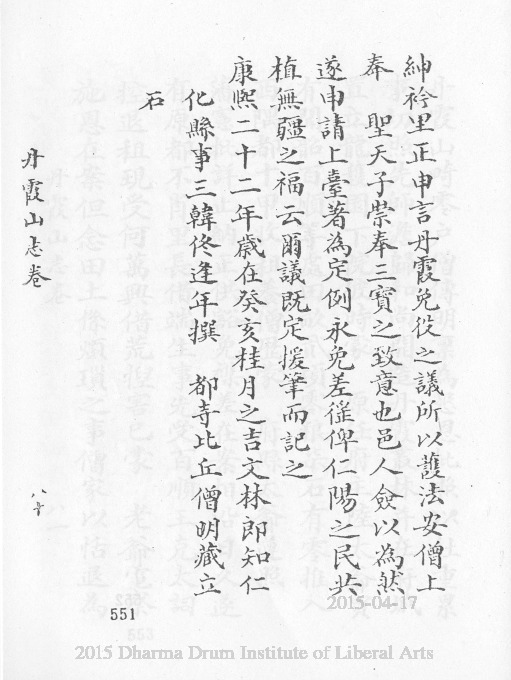 紳衿里正申言丹霞免役之議所以護法安僧上
奉　聖天子崇奉三寶之致意也邑人僉以為然
遂申請上臺著為定例永免差徭俾仁陽之民共
植無疆之福云爾議既定援筆而記之
康熙二十二年歲在癸亥桂月之吉文林郎知仁
化縣事三韓佟逢年撰　都寺比丘僧明藏立
石
丹霞山志卷
八十
2015-04-17
551
2015 Dharma Drum Institute of Liberal Arts